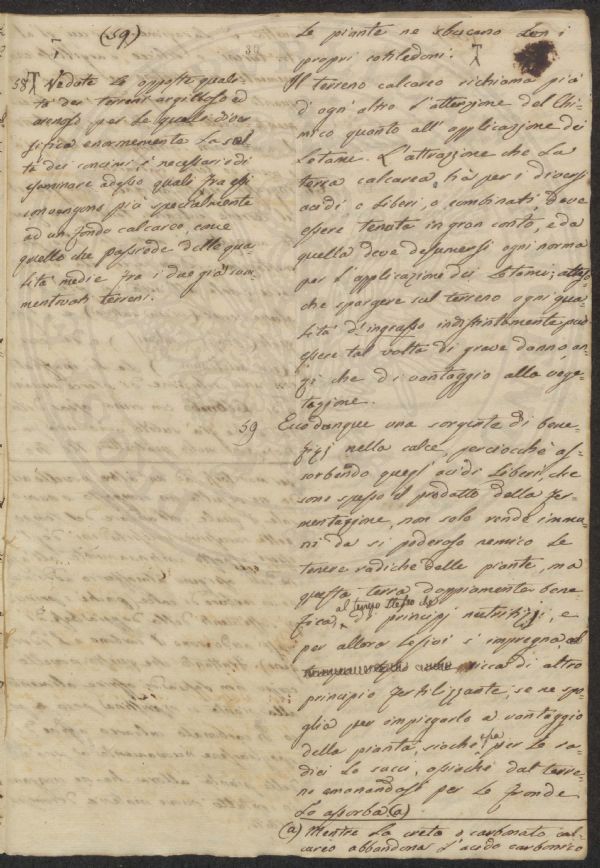 (59)
39
58 Vedute le opposte quali-
tà dei terreni argilloso ed
arenoso per le quali diver
sifica enormemente la scel
ta dei concimi, è necessario di
esaminare adesso quali fra essi
convengono più specialmente
ad un fondo calcareo, come
quello che possiede delle qua-
lità medie fra i due già ram-
mentovati terreni.
le piante ne sbucano con i
propri cotiledoni.
Il terreno calcareo richiama più
d'ogn'altro l'attenzione del Chi-
mico quanto all'applicazione dei
Letame. L'attrazione che la
terra calcarea hà per i diversi
acidi, o liberi, o combinati, deve
essere tenuta in gran conto, e da
quella deve desumersi ogni norma
per l'applicazione dei Letami;
che spargere sul terreno ogni qua-
lità d'ingrasso indistintamente può
essere tal volta di grave danno, an
zi che di vantaggio alla vege-
tazione.
59 Ecco dunque una sorgente di bene-
fizj nella calce, perciocchè as-
sorbendo quegl'acidi liberi, che
sono spesso il prodotto della fer-
mentazione, non solo rende immu-
ni da si poderoso nemico le
tenere radiche delle piante, ma
questa terra doppiamente bene
fica, al tempo stesso che di principj nutritizj, e
per allora lesivi s'impregna,
ricca di altro
principio fertilizzante, se ne spo-
glia per impiegarlo a vantaggio
della pianta, sioché essa per le ra-
dici lo succi, ossioché dal terre-
no emanandosi per le fronde
lo assorba (a)
(a) Mentre la creta o carbonato cal-
careo abbandona l'acido carbonico